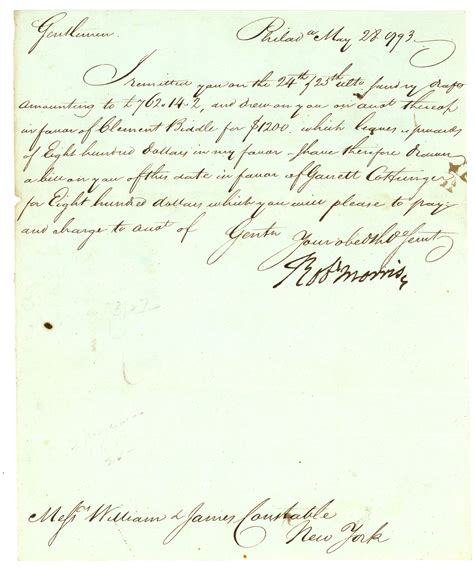 Gentlemen Philad.a May 28. 1793.
I remitted you on the 24th & 25th ulto sundry drafts
amounting to £762.14.2, and drew on you on acct thereof
in favor of Clement Biddle for $1200. which leaves upwards
of Eight hundred Dollars in my favor I have therefore drawn
a bill on you of this date in favor of Garrett Cottringer
for Eight hundred dollars which you will please to pay
and charge to acct of Gentn
Your obedt hble Servt
Robt Morris
Messrs William & James Constable
New York